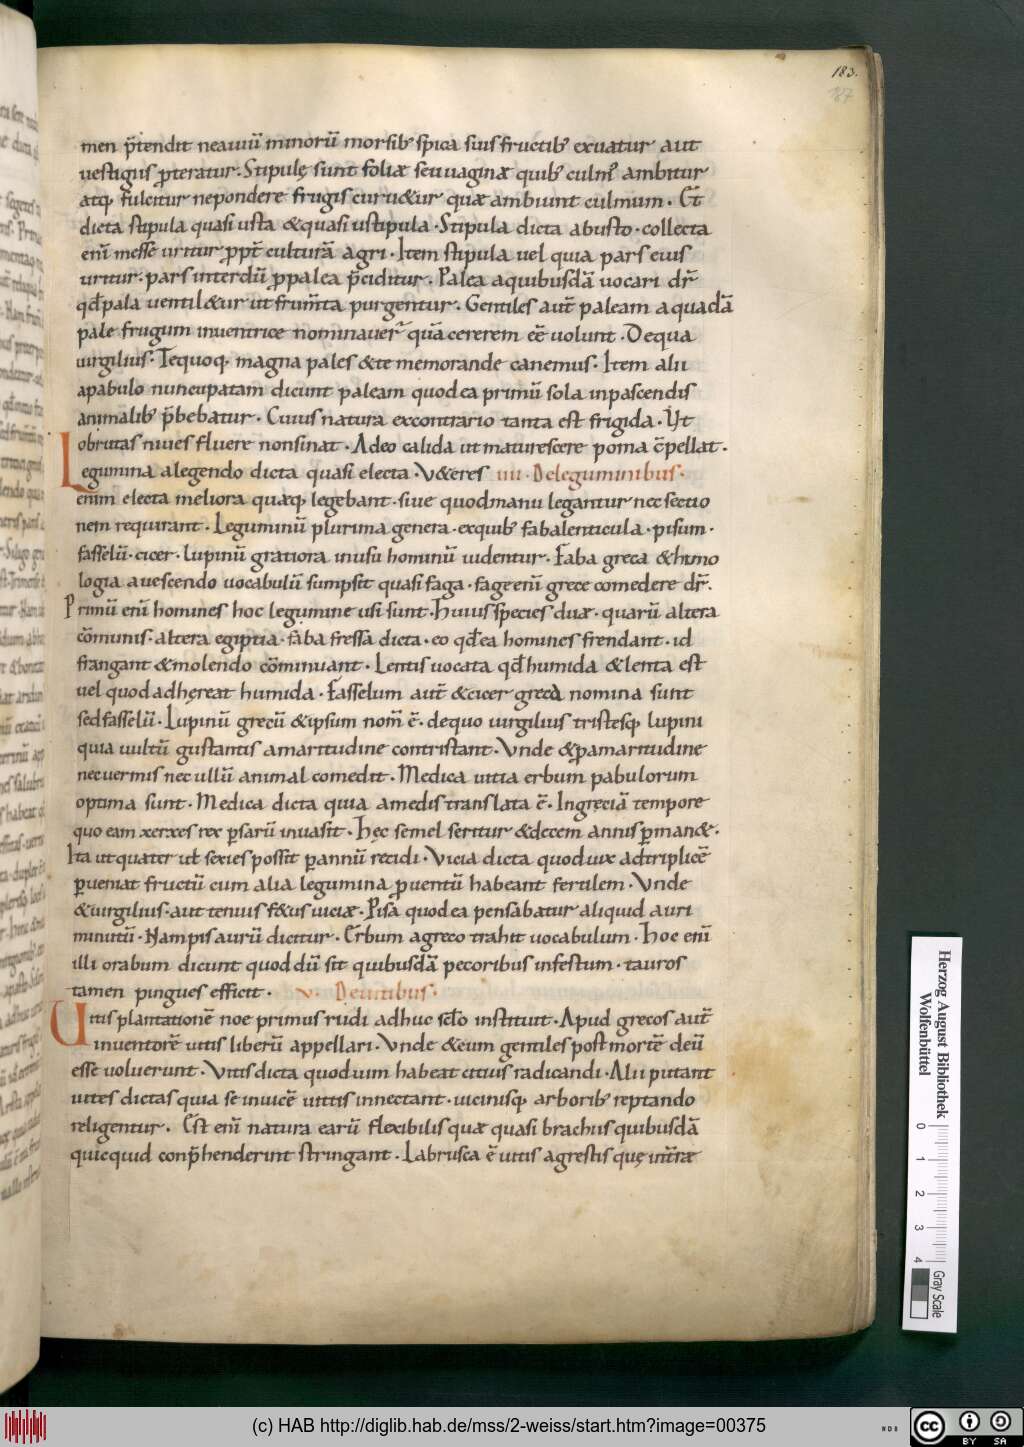 183.
187
men p̄tendit neauiū minorū morsib; spica suis fructib; exuatur aut
uestigiis p̱teratur. Stipulę sunt foliæ seu uaginæ quib; culm̄; ambitur
atq; fulcitur nepondere frugis curu&ur quæ ambiunt culmum. Et̄
dicta stipula quasi usta &quasi ustipula. Stipula dicta abusto. collecta
eni̅ messe uritur ꝓpt̄ culturā agri. Item stipula uel quia pars eius
uritur. pars interdū ꝓpalea p̄ciditur. Palea aquibusdā uocari dr̄
qd̄pala uentil&ur ut frum̄ta purgentur. Gentiles aut̄ paleam aquadā
pale frugum inuentrice nominauer̄ quā cererem eē uolunt. Dequa
uirgilius. Tequoq; magna pales &te memorande canemus. Item alii
apabulo nuncupatam dicunt paleam quodea primū sola inpascendis
animalib; p̄bebatur. Cuius natura excontrario tanta est frigida. Ut
obrutas niues fluere nonsinat. Adeo calida ut maturescere poma cō̄pellat.
Legumina alegendo dicta quasi electa. U&eres iiii. Deleguminibus.
enim electa meliora quæq; legebant. siue quodmanu legantur nec sectio
nem requirant. Leguminū plurima genera. exquib; faba lenticula. pisum.
fasselū. cicer. lupinū gratiora inusu hominū uidentur. Faba greca &himo
logia auescendo uocabulū sumpsit quasi faga. fage enī grece comedere dr̄.
Primū enī homines hoc legumine usi sunt. Huius species duæ. quarū altera
cōmunis. altera egiptia. faba fressa dicta. eo qd̄ea homines frendant. id
frangant &molendo cōminuant. Lentis uocata qd̄humida &lenta est
uel quod adhęreat humida. Fasselum aut̄ &cicer greca nomina sunt
sedfasselū. Lupinū grecū &ipsum nom̄ ē. dequo uirgilius tristesq; lupini
quia uultū gustantis amaritudine contristant. Unde &p̱amaritudine
necuermis nec ullū animal comedit. Medica uitia erbum pabulorum
optima sunt. Medica dicta quia amedis translata ē. Ingręciā tempore
quo eam xerxes rex p̱sarū inuasit. Hęc semel seritur &decem annis p̱man&.
Ita ut quater ut̄ sexies possit p̱annū recidi. Vicia dicta quoduix adtriplicē
p̱ueniat fructū cum alia legumina ꝓuentū habeant fertilem. Unde
&uirgilius. aut tenuis f&us uiciæ. Pisa quodea pensabatur aliquid auri
minutū. Nam pis aurū dicitur. Erbum agreco trahit uocabulum. Hoc enī
illi orabum dicunt quod dū sit quibusdā pecoribus infestum. tauros
tamen pingues efficit. v. Deuitibus.
Uitis plantationē noe primus rudi adhuc sc̄lo instituit. Apud grecos aut̄
inuentorē uitis liberū appellari. Unde &eum gentiles post mortē deū
esse uoluerunt. Vitis dicta quod uim habeat citius radicandi. Alii putant
uites dictas quia se inuicē uittis innectant. uicinisq; arborib; reptando
religentur. Est enī natura earū flexibilis quæ quasi brachiis quibusdā
quicquid conp̄henderint stringant. Labrusca ē uitis agrestis quę int̄ræ
Herzog August Bibliothek
Wolfenbüttel
0 1 2 3 4
Gray Scale
(c) HAB http://diglib.hab.de/mss/2-weiss/start.htm?image=00375
cc BY SA